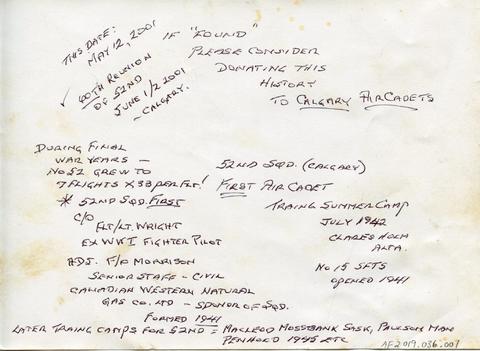 THIS DATE:
MAY 12, 2001
✓ 60TH REUNION
OF 52ND
JUNE 1/2 2001
- CALGARY.
IF "FOUND"
PLEASE CONSIDER
DONATING THIS
HISTORY
TO CALGARY AIR CADETS
DURING FINAL
WAR YEARS -
NO 52 GREW TO
7 FLIGHTS X 33 PER FLT!
* 52ND SQD. FIRST
C/O
FLT/LT. WRIGHT
EX WW I FIGHTER PILOT
ADJ. F/O MORRISON
SENIOR STAFF - CIVIL
CANADIAN WESTERN NATURAL
GAS CO. LTD - SPONOR OF SQD.
FORMED 1941
52ND SQD. (CALGARY)
FIRST AIR CADET
TRAING SUMMER CAMP
JULY 1942
CLARESHOLM
ALTA.
NO 15 SFTS
OPENED 1941
LATER TRAING CAMPS FOR 52ND = MACLEOD MOSSBANK SASK, PAULSON MAN
PENHOLD 1945 ETC
AF2019.036.007